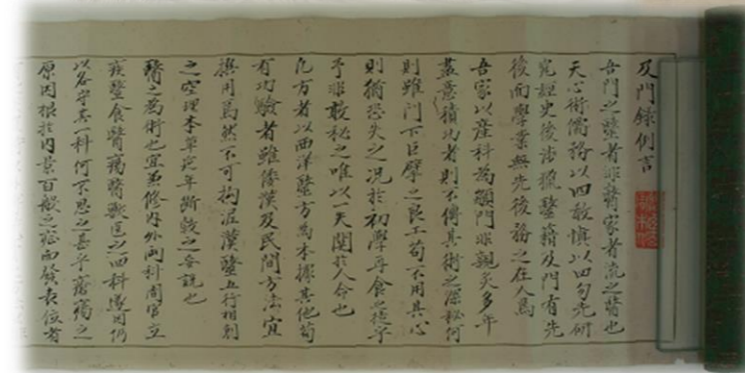 及門錄例言
吾門之醫者非醫家者流之醫也
天心術儒務以四教慎以四勿先研
究經史後涉獵醫籍及門有先
後而學業無先後務之在人焉
吾家以産科為顓門非親炙多年
蓋意積功者則不傳其術之深秘何
則雖門下巨擘之良工苟不用其心
則猶恐失之况於初學再食之徒乎
予非敢秘之唯以一天關於人命也
凡方者以西洋醫方為本據其他苟
有功驗者雖倭漢及民間方法宜
撰用焉然不可拘泥漢醫五行相剋
之空理本草究年斷穀之妄說也
醫之為術也宜兼修内外兩科周官立
疾醫食醫瘍醫獸醫之四科後因仍
以各守其一科何不思之甚乎瘍之
原因根於内景百般之而發表位者